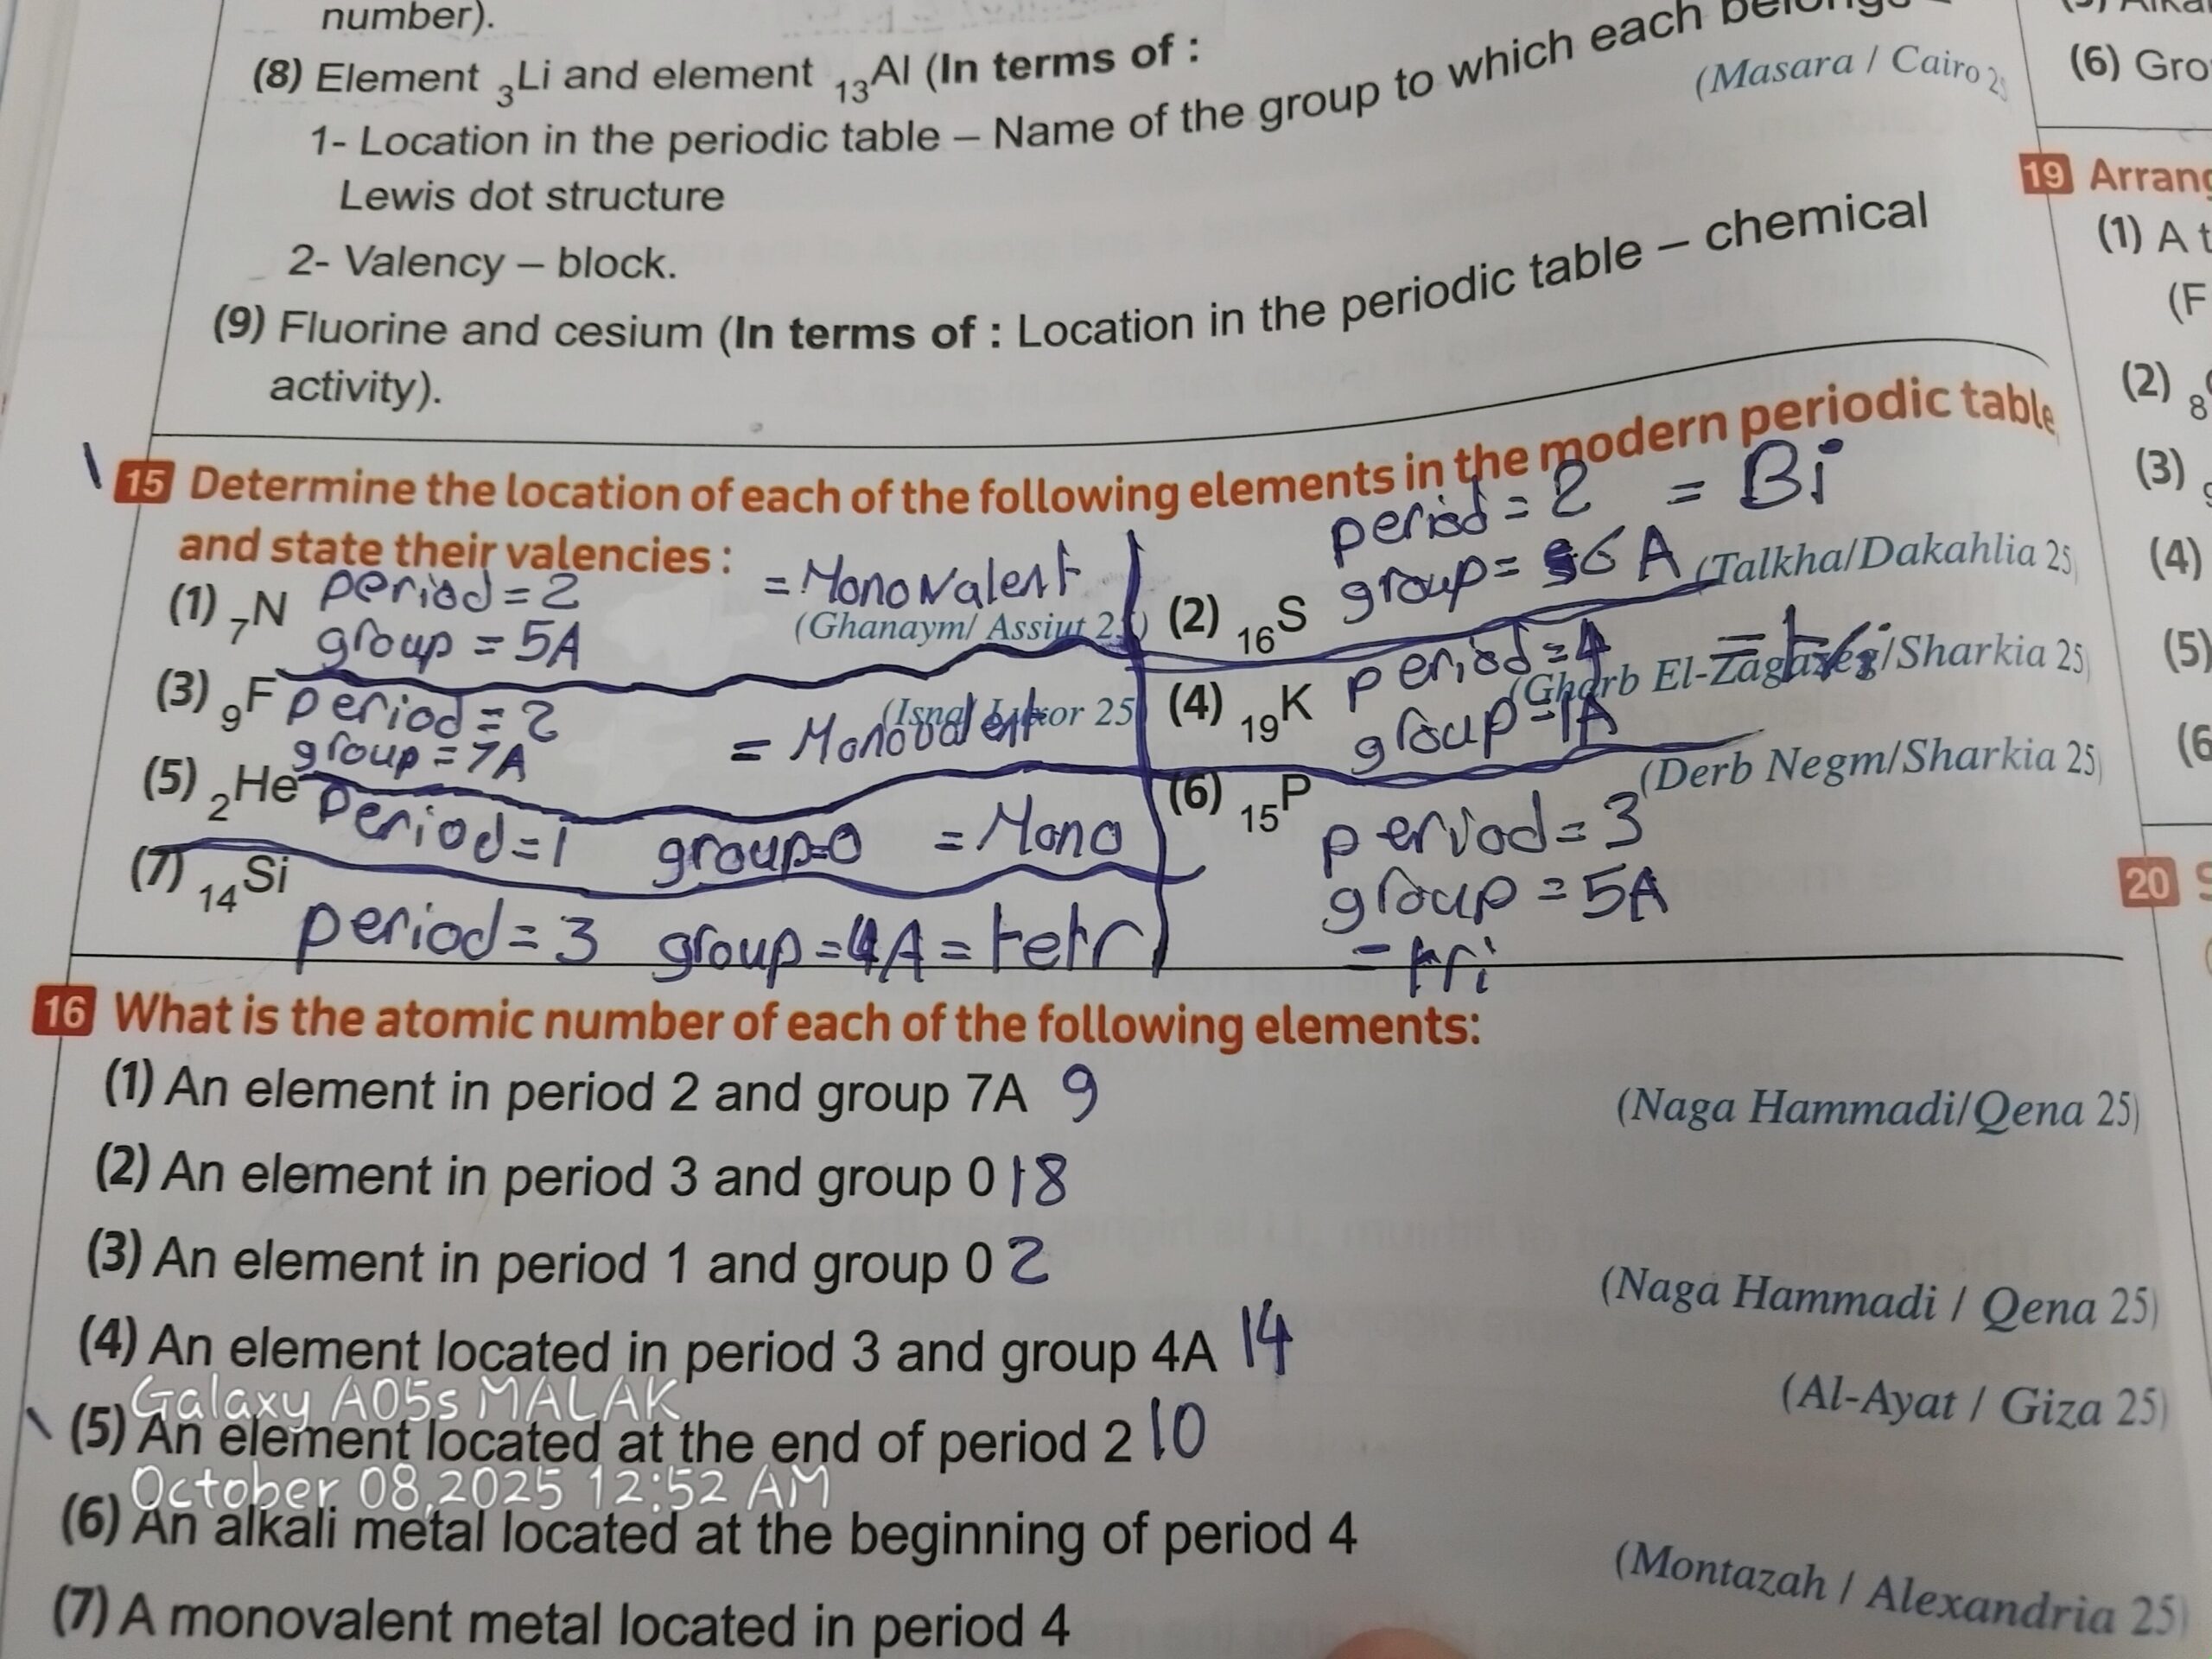 number).
(8) Element 3Li and element 13Al (In terms of :
1- Location in the periodic table – Name of the group to which each
Lewis dot structure
(Masara / Cairo 2
2- Valency – block.
(9) Fluorine and cesium (In terms of : Location in the periodic table – chemical
activity).
15 Determine the location of each of the following elements in the modern periodic table
and state their valencies :
(1) 7N period = 2
group = 5A
= Monovalent
(Ghanaym/ Assiut 2
(2) 16S period = 2 = Bi
group = 6A
(Talkha/Dakahlia 25
(3) 9F period = 2
group = 7A
= Monovalent
(4) 19K period = 4
group = 1A
/Sharkia 25
(5) 2He period = 1 group=0 = Mono
(6) 15P
(Derb Negm/Sharkia 25
period = 3
group = 5A
= tri
(7) 14Si
period = 3 group = 4A = tetr
16 What is the atomic number of each of the following elements:
(1) An element in period 2 and group 7A 9
(Naga Hammadi/Qena 25)
(2) An element in period 3 and group 0 18
(3) An element in period 1 and group 0 2
(Naga Hammadi / Qena 25)
(4) An element located in period 3 and group 4A 14
(Al-Ayat / Giza 25)
Galaxy A05s MALAK
(5) An element located at the end of period 2 10
October 08,2025 12:52 AM
(6) An alkali metal located at the beginning of period 4
(Montazah / Alexandria 25)
(7) A monovalent metal located in period 4
(6) Gro
19 Arrang
(1) A t
(F
(2) 8
(3)
(4)
(5)
(6
20 S